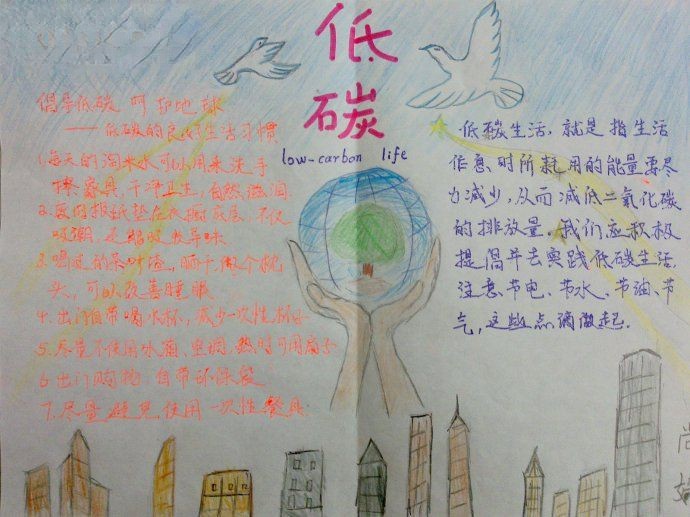 低
碳
low-carbon life
倡导低碳 呵护地球
——低碳的良好生活习惯
1.每天的淘米水可以用来洗手
擦家具,干净卫生,自然滋润.
2.废旧报纸垫在衣橱底层,不仅
吸潮,还能吸收异味
3.喝过的茶叶渣,晒干,做个枕
头,可以改善睡眠
4.出门自带喝水杯,减少一次性杯
5.尽量不使用冰箱,空调,热时可用扇子
6.出门购物,自带环保袋
7.尽量避免使用一次性餐具.
低碳生活,就是指生活
作息时所耗用的能量要尽
力减少,从而减低二氧化碳
的排放量.我们应积极
提倡并去实践低碳生活.
注意节电、节水、节油、节
气,这些点滴做起.
尚